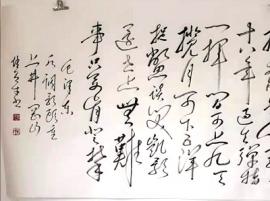 十八年过去弹指
一挥间可上九天
揽月可下五洋
捉鳖谈笑凯歌
还世上無難
事只要肯登攀
毛泽东
水调歌头重
上井冈山